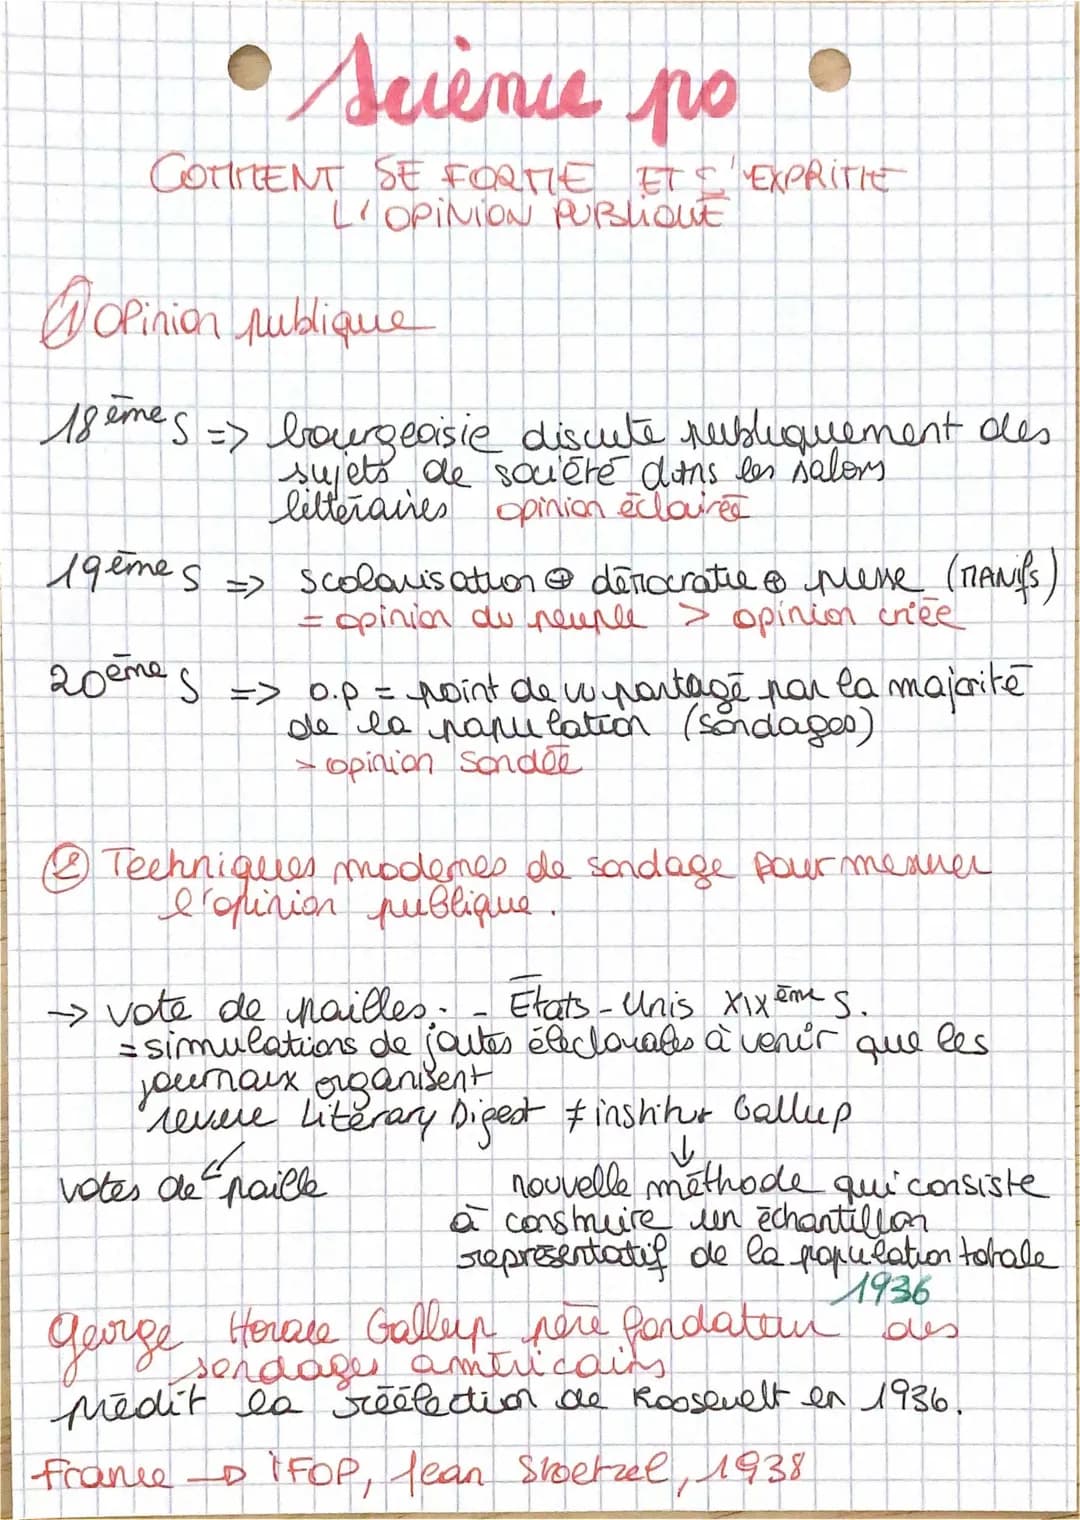 Science po
COMMENT SE FORME ET S'EXPRIME
L'OPINION PUBLIQUE
① Opinion publique
18ème s => bourgeoisie discute publiquement des
sujets de société dans les salons
littéraires opinion éclairée
19ème s => scolarisation ⊕ démocratie ⊕ presse (MANifs)
= opinion du peuple > opinion criée
20ème s => o.p = point de vu partagé par la majorité
de la population (sondages)
> opinion sondée
② Techniques modernes de sondage pour mesurer
l'opinion publique.
→ vote de pailles. - États-Unis XIXème s.
= simulations de joutes électorales à venir que les
journaux organisent
revue Literary Digest ≠ institut Gallup
votes de paille nouvelle méthode qui consiste
à construire un échantillon
représentatif de la population totale
1936
George Horace Gallup père fondateur des
sondages américains
prédit la réélection de Roosevelt en 1936.
France → IFOP, Jean Stoetzel, 1938